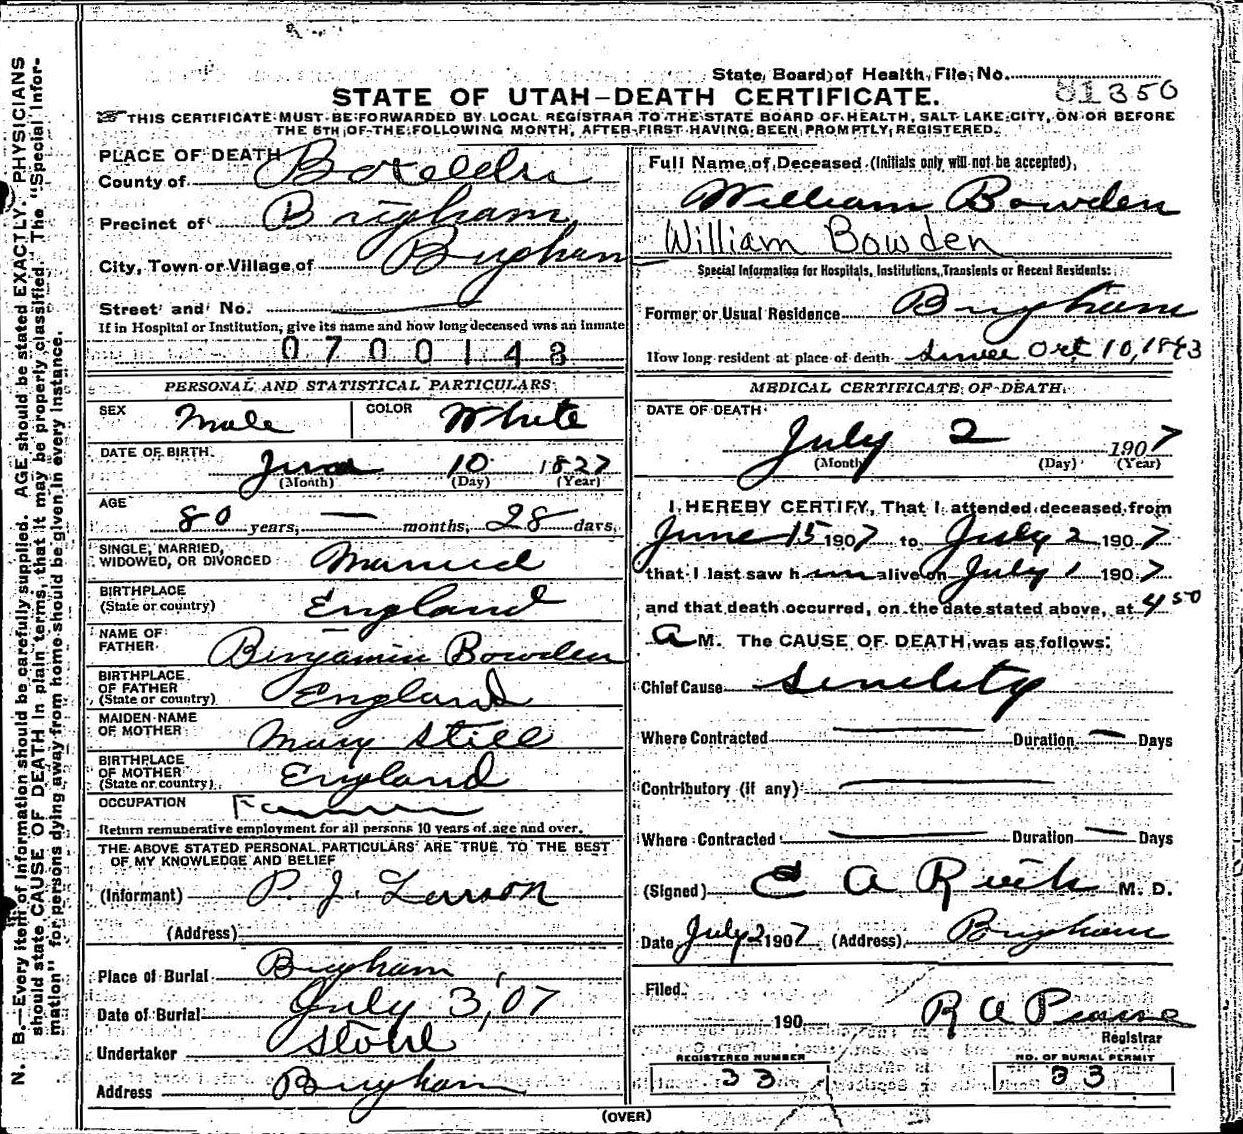 State Board of Health File No.
81350
STATE OF UTAH—DEATH CERTIFICATE.
THIS CERTIFICATE MUST BE FORWARDED BY LOCAL REGISTRAR TO THE STATE BOARD OF HEALTH, SALT LAKE CITY, ON OR BEFORE
THE 5TH OF THE FOLLOWING MONTH, AFTER FIRST HAVING BEEN PROMPTLY REGISTERED.
N. B.—Every item of information should be carefully supplied. AGE should be stated EXACTLY. PHYSICIANS
should state CAUSE OF DEATH in plain terms, that it may be properly classified. The "Special Infor-
mation" for persons dying away from home should be given in every instance.
PLACE OF DEATH
County of Boxelder
Precinct of Brigham
City, Town or Village of Brigham
Street and No.
If in Hospital or Institution, give its name and how long deceased was an inmate
0700143
PERSONAL AND STATISTICAL PARTICULARS
SEX Male COLOR White
DATE OF BIRTH 10 1827
(Month) (Day) (Year)
AGE
80 years, — months, 28 days,
SINGLE, MARRIED,
WIDOWED, OR DIVORCED Married
BIRTHPLACE
(State or country) England
NAME OF
FATHER Binjamin Bowden
BIRTHPLACE
OF FATHER
(State or country) England
MAIDEN NAME
OF MOTHER Mary Still
BIRTHPLACE
OF MOTHER
(State or country) England
OCCUPATION Farmer
Return remunerative employment for all persons 10 years of age and over.
THE ABOVE STATED PERSONAL PARTICULARS ARE TRUE TO THE BEST
OF MY KNOWLEDGE AND BELIEF
(Informant) P. J. Larson
(Address)
Place of Burial Brigham
Date of Burial July 3, 07
Undertaker Stohl
Address Brigham
Full Name of Deceased (Initials only will not be accepted),
William Bowden
William Bowden
Special Information for Hospitals, Institutions, Transients or Recent Residents:
Former or Usual Residence Brigham
How long resident at place of death since Oct 10, 18 3
MEDICAL CERTIFICATE OF DEATH
DATE OF DEATH
July 2 1907
(Month) (Day) (Year)
I HEREBY CERTIFY, That I attended deceased from
June 15 1907 to July 2 1907
that I last saw him alive on July 1 1907
and that death occurred, on the date stated above, at 4 50
A M. The CAUSE OF DEATH was as follows:
Chief Cause Senility
Where Contracted — Duration — Days
Contributory (if any) —
Where Contracted — Duration — Days
(Signed) E A M. D.
Date July 2 1907 (Address) Brigham
Filed
190 R A Pearse
Registrar
REGISTERED NUMBER
33
NO. OF BURIAL PERMIT
33
(OVER)